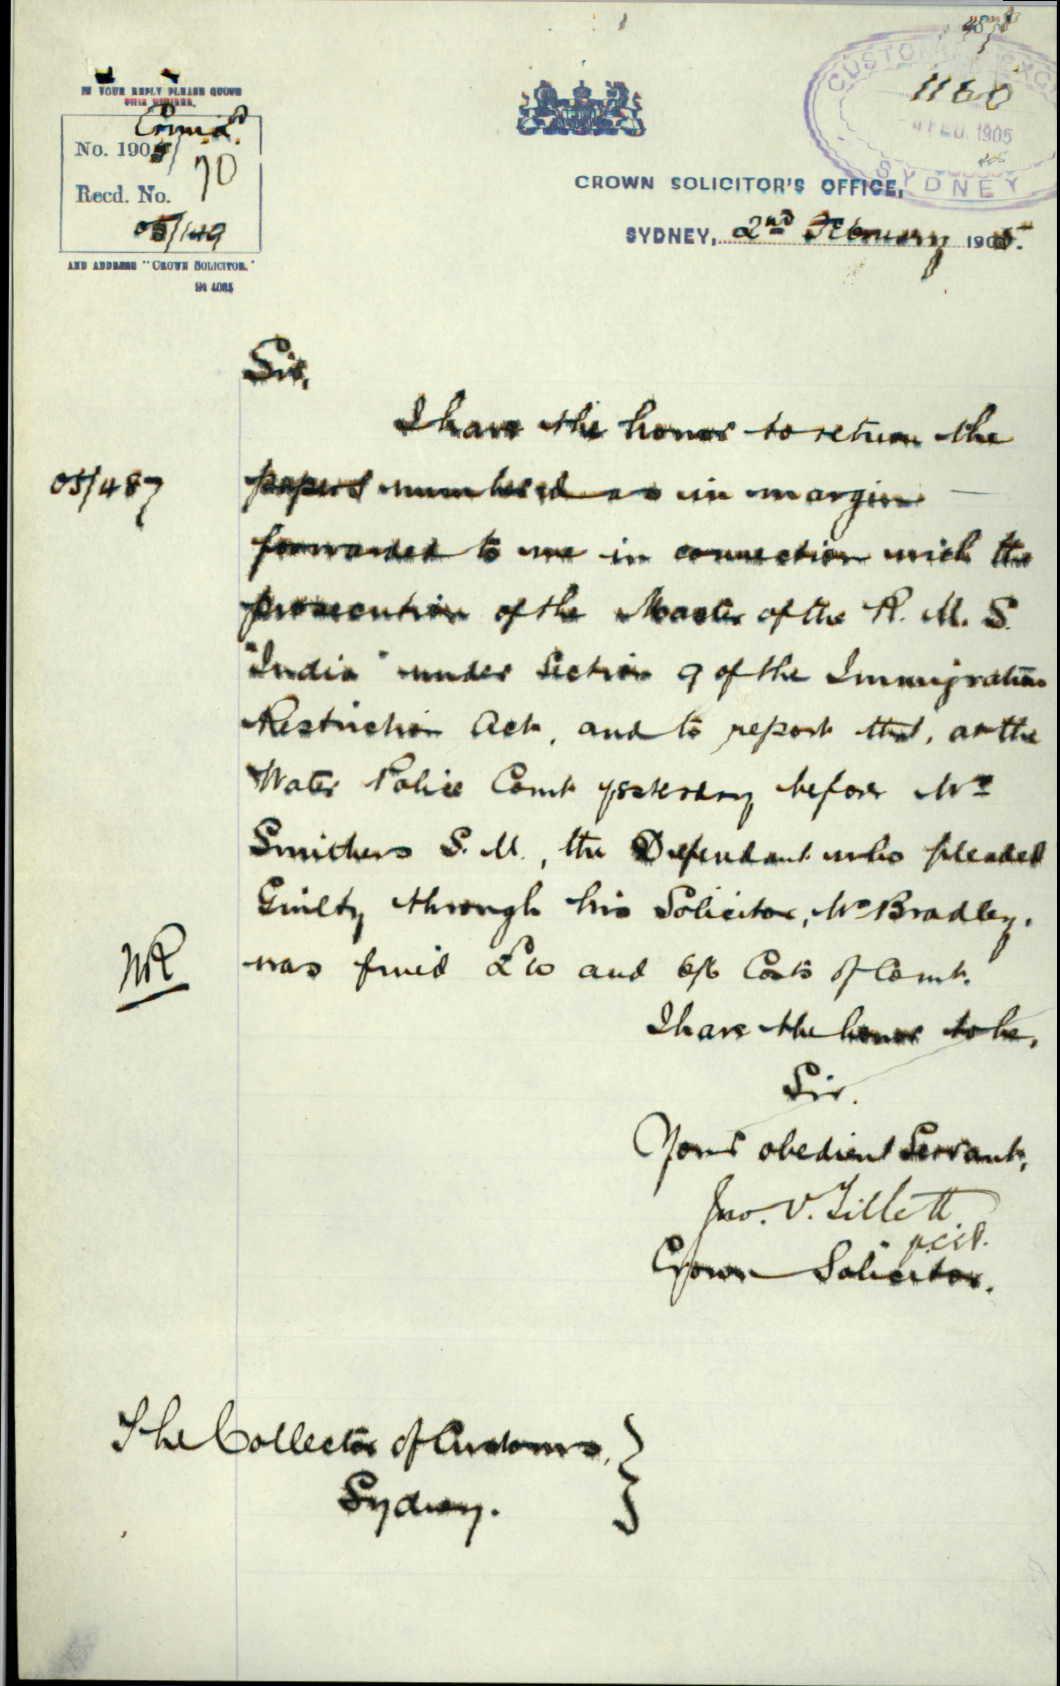 IN YOUR REPLY PLEASE QUOTE
THIS NUMBER.
No. 1905/70
Recd. No.
05/149
AND ADDRESS "CROWN SOLICITOR."
CUSTOMS
1160
FEB. 1905
SYDNEY
CROWN SOLICITOR'S OFFICE,
SYDNEY, 2nd February 1905.
Sir,
I have the honor to return the
05/487 papers numbered as in margin
forwarded to me in connection with the
prosecution of the Master of the R. M. S.
"India" under Section 9 of the Immigration
Restriction Act, and to report that, at the
Water Police Court yesterday before Mr
Smithers S. M., the Defendant who pleaded
Guilty through his Solicitor, Mr Bradley,
was fined £10 and 6/6 Costs of Court.
I have the honor to be,
Sir.
Your obedient Servant,
Jno. V. Tillett
Crown Solicitor.
The Collector of Customs,
Sydney.